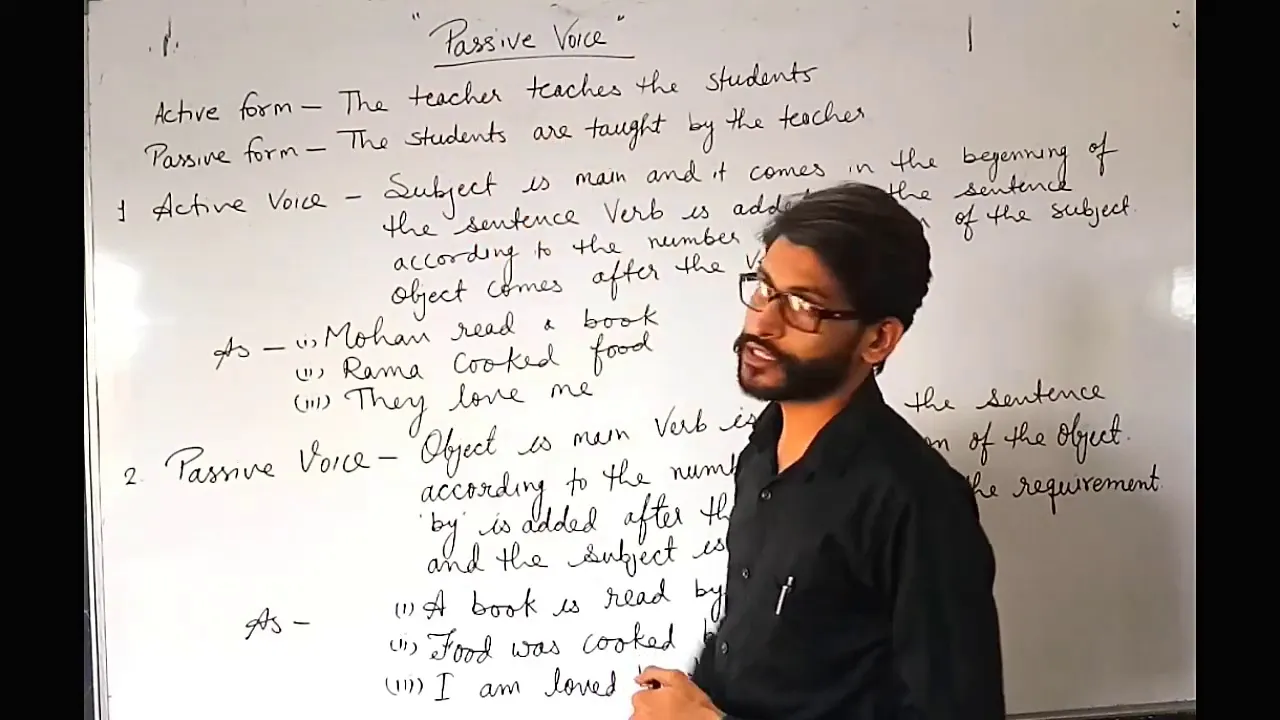 "Passive Voice"
Active form – The teacher teaches the students
Passive form – The students are taught by the teacher
1 Active Voice – Subject is main and it comes in the begenning of
the sentence Verb is added the sentence
according to the number of the subject.
object comes after the
As – (i) Mohan read a book
(ii) Rama Cooked food
(iii) They love me
2. Passive Voice – Object is main Verb is the sentence
according to the of the object.
'by' is added after the requirement
and the subject is
As – (i) A book is read by
(ii) Food was cooked
(iii) I am loved